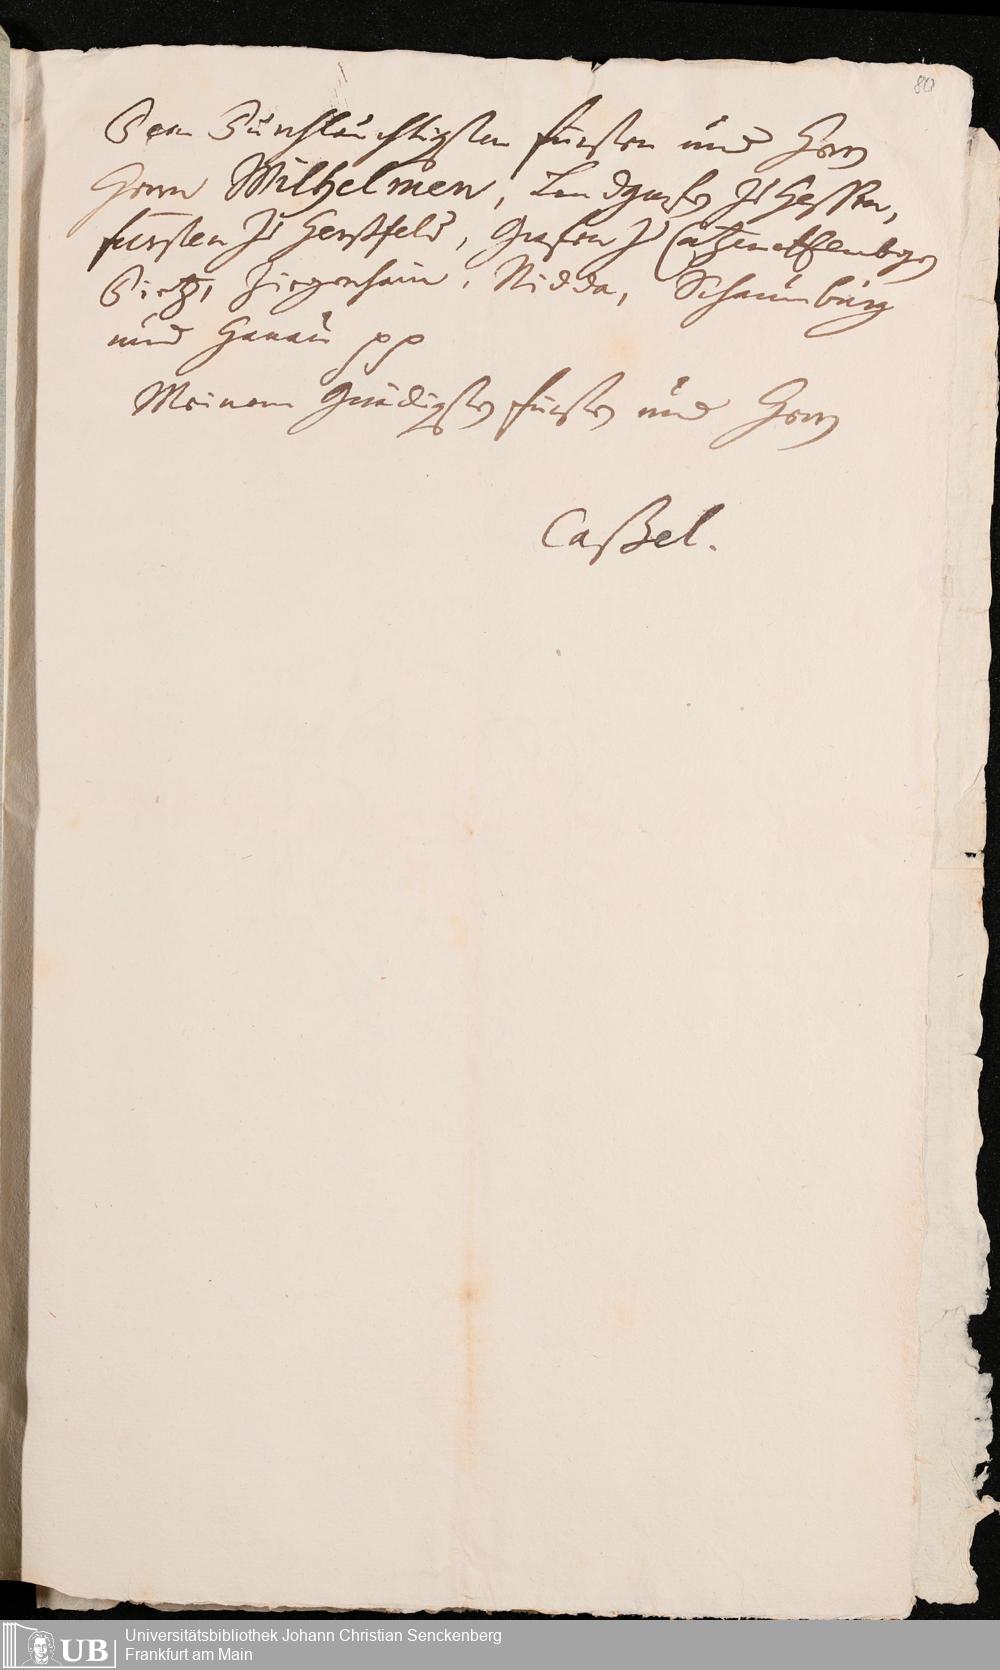 80
Dem Durchläuchtigsten Fürsten und Herrn
Herrn Wilhelmen, Landgrafen zu Hessen,
Fürsten zu Herßfeld, Grafen zu Catzenelnbogen
Dietz, Ziegenhain, Nidda, Schaumburg
und Hanau pp
Meinem Gnädigsten Fürsten und Herrn
Caßel.
UB
Universitätsbibliothek Johann Christian Senckenberg
Frankfurt am Main